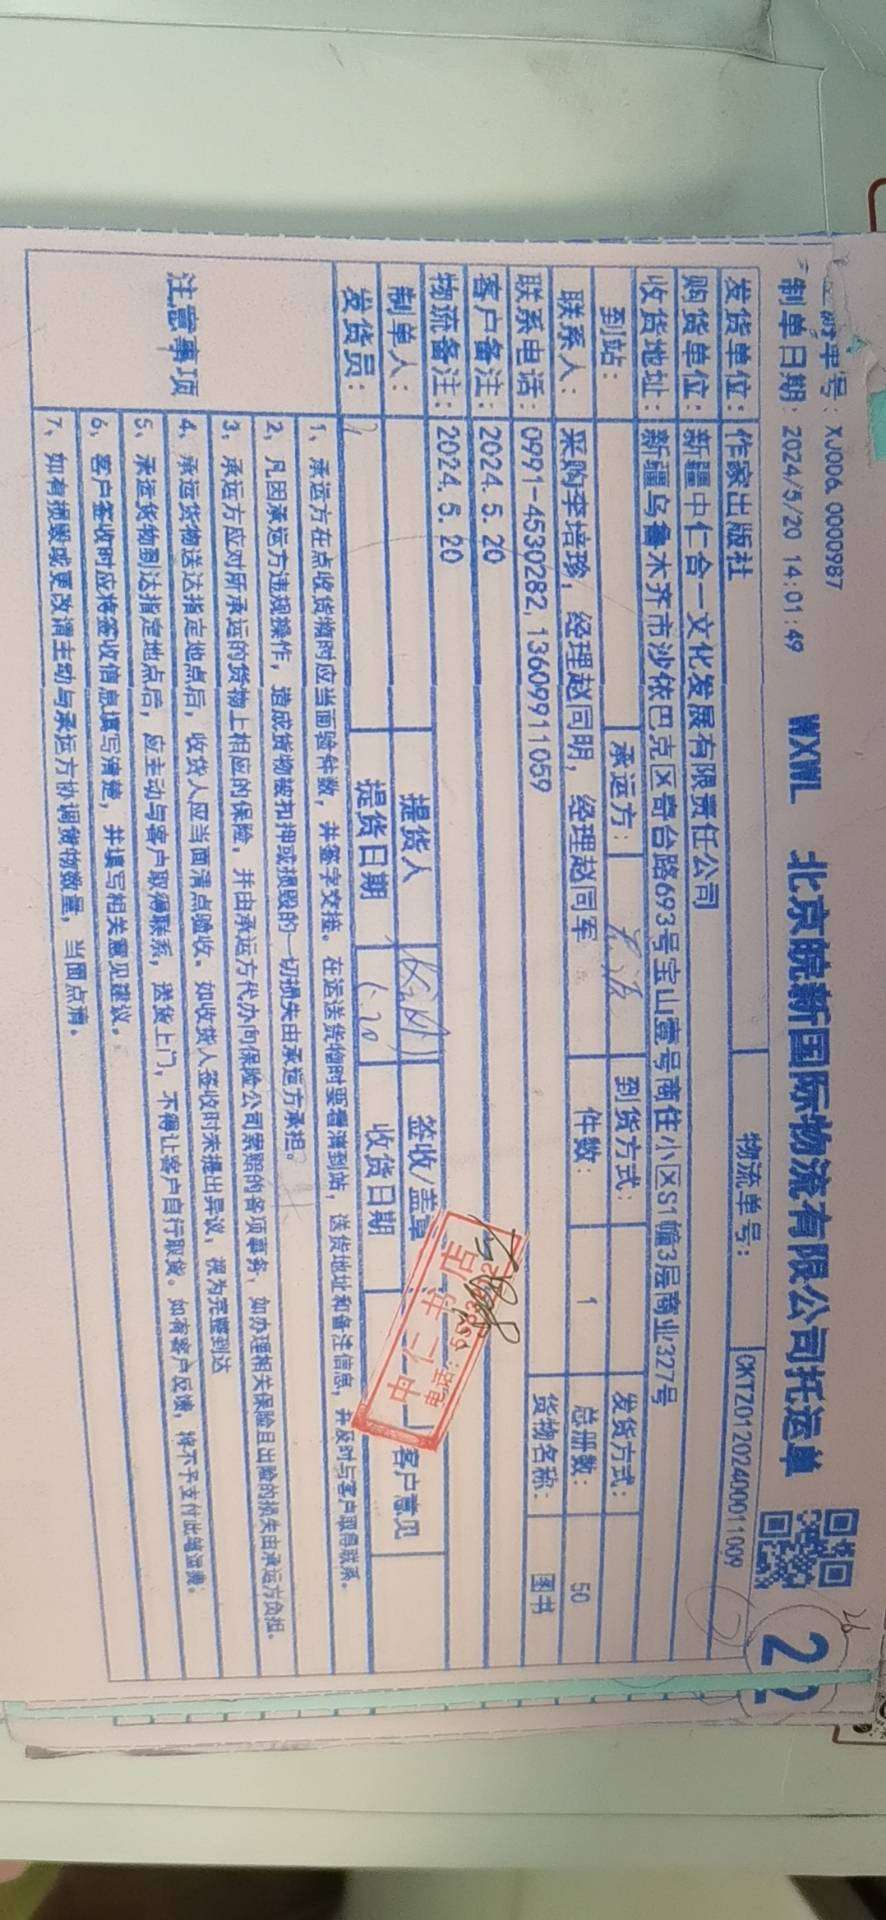 XJ006 0000987
制单日期: 2024/5/20 14:01:49 WXWL 北京皖新国际物流有限公司托运单 22
发货单位: 作家出版社 物流单号: CKTZ0120240001 1009
购货单位: 新疆中仁合一文化发展有限责任公司
收货地址: 新疆乌鲁木齐市沙依巴克区奇台路693号宝山壹号商住小区S1幢3层商业327号
到站: 承运方: 到货方式: 发货方式:
联系人: 采购李培珍, 经理赵同明, 经理赵同军 件数: 1 总册数: 50
联系电话: 0991-4530282, 13609911059 货物名称: 图书
客户备注: 2024.5.20
物流备注: 2024.5.20
制单人: 提货人 签收/盖章 客户意见
发货员: 提货日期 收货日期
中仁书店
电话:
注意事项
1、承运方在点收货物时应当面验件数, 并签字交接。在运送货物时要看准到站, 送货地址和备注信息, 并及时与客户取得联系。
2、凡因承运方违规操作, 造成货物被扣押或损毁的一切损失由承运方承担。
3、承运方应对所承运的货物上相应的保险, 并由承运方代办向保险公司索赔的各项事务, 如办理相关保险且出险的损失由承运方负担。
4、承运货物送达指定地点后, 收货人应当面清点验收。如收货人签收时未提出异议, 视为完整到达
5、承运货物到达指定地点后, 应主动与客户取得联系, 送货上门, 不得让客户自行取货。如有客户反馈, 将不予支付此笔运费。
6、客户签收时应将签收信息填写清楚, 并填写相关意见建议。
7、如有损毁或更改请主动与承运方协调货物数量, 当面点清。